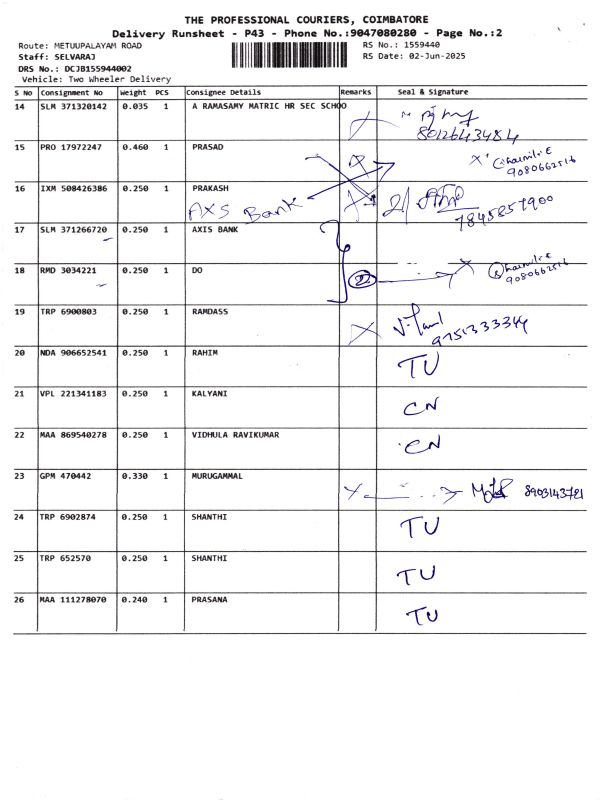 THE PROFESSIONAL COURIERS, COIMBATORE
Delivery Runsheet - P43 - Phone No.:9047080280 - Page No.:2
Route: METUUPALAYAM ROAD RS No.: 1559440
Staff: SELVARAJ RS Date: 02-Jun-2025
DRS No.: DCJB155944002
Vehicle: Two Wheeler Delivery
S No Consignment No Weight PCS Consignee Details Remarks Seal & Signature
14 SLM 371320142 0.035 1 A RAMASAMY MATRIC HR SEC SCHOO
8012643484
15 PRO 17972247 0.460 1 PRASAD
9080662516
16 IXM 508426386 0.250 1 PRAKASH
AXS Bank 7845857900
17 SLM 371266720 0.250 1 AXIS BANK
18 RMD 3034221 0.250 1 DO
2
9080662516
19 TRP 6900803 0.250 1 RAMDASS
9751333344
20 NDA 906652541 0.250 1 RAHIM TU
21 VPL 221341183 0.250 1 KALYANI CN
22 MAA 869540278 0.250 1 VIDHULA RAVIKUMAR CN
23 GPM 470442 0.330 1 MURUGAMMAL 8903143721
24 TRP 6902874 0.250 1 SHANTHI TU
25 TRP 652570 0.250 1 SHANTHI TU
26 MAA 111278070 0.240 1 PRASANA TU